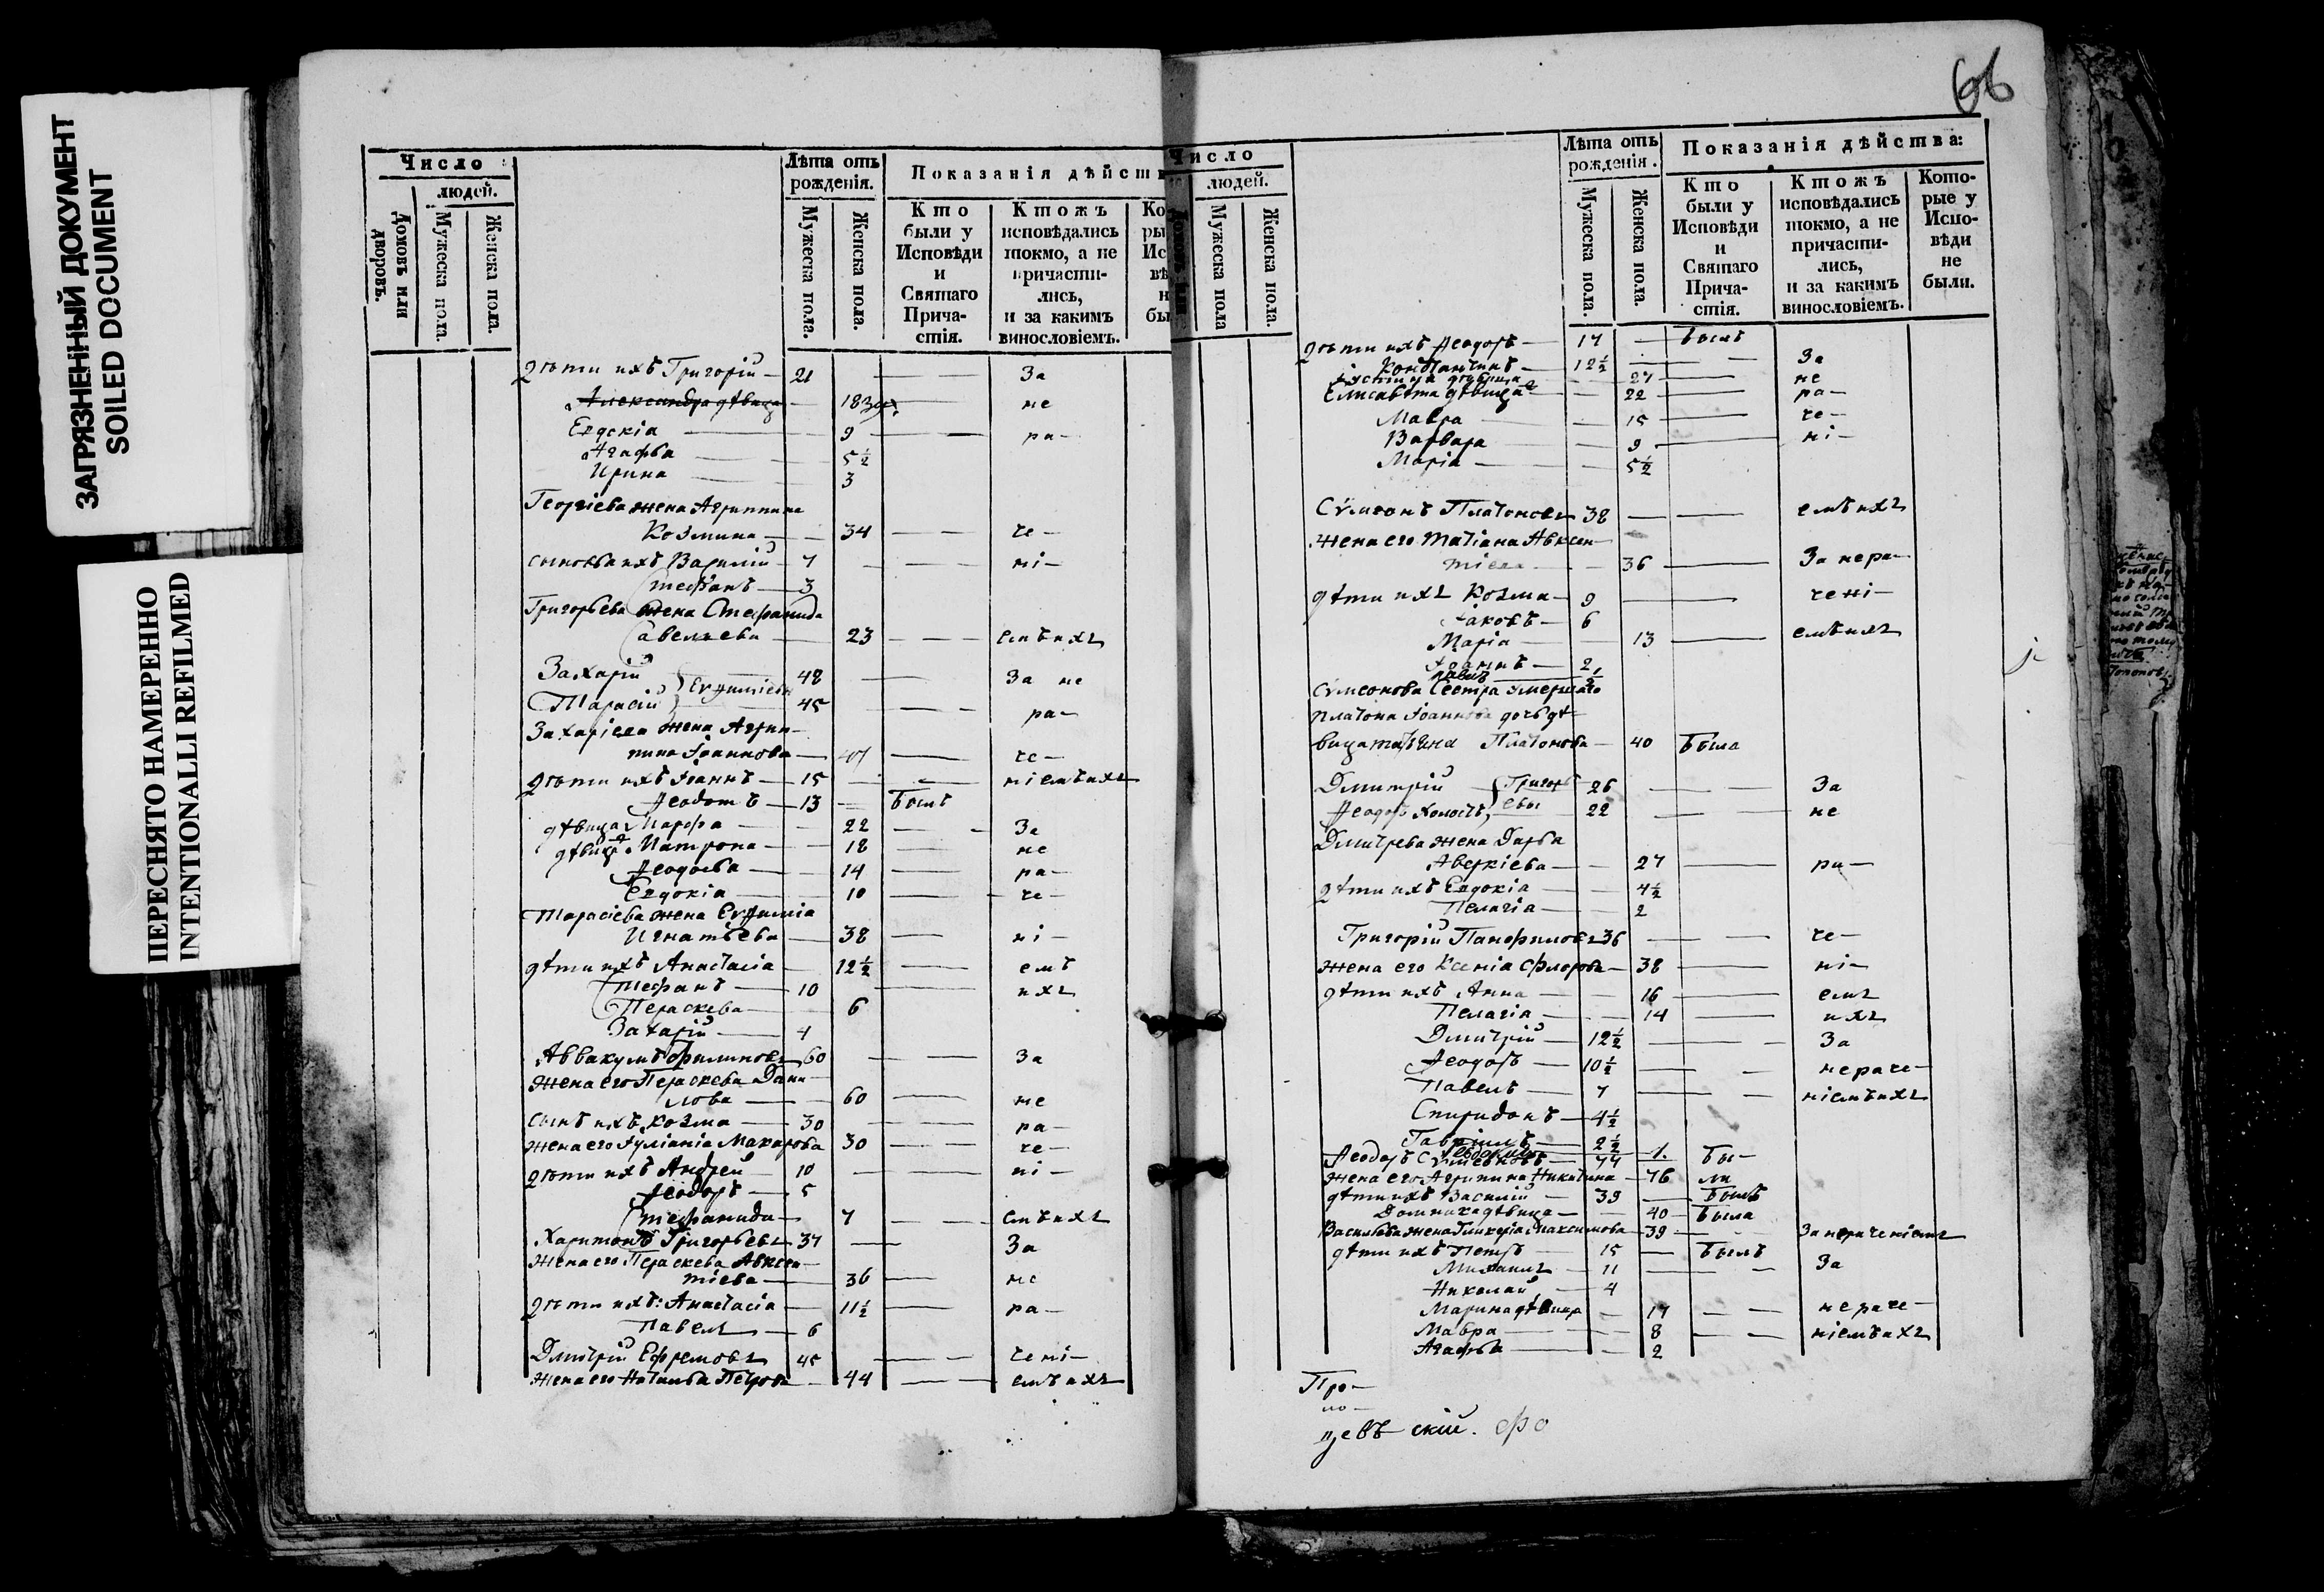 ЗАГРЯЗНЕННЫЙ ДОКУМЕНТ
SOILED DOCUMENT
ПЕРЕСНЯТО НАМЕРЕННО
INTENTIONALLI REFILMED
Число
людей.
Домовъ или дворовъ.
Мужеска пола.
Женска пола.
Лѣта отъ рожденія.
Мужеска пола.
Женска пола.
Показанія дѣйств
Кто были у Исповѣди и Святаго Причастія.
Ктожъ исповѣдались токмо, а не причасти-лись, и за какимъ винословіемъ.
дѣти ихъ Григорій 21 За
Александра дѣвица 18 не
Евдокіа 9 ра-
Агафья 5½
Ирина 3
Георгіева жена Агриппина
Козмина 34 че-
сыновья ихъ Василій 7 ні-
Стефанъ 3
Григорьева жена Стефанида
Савельева 23 емъ ихъ
Захарій 48 За не
Тарасій Евфиміевы 45 ра-
Захаріева жена Агрип-
пина Іоаннова че-
дѣти ихъ Іоаннъ 15 ніемъ ихъ
Ѳеодотъ 13 былъ
дѣвица Марфа 22 За
дѣвица Матрона 18 не
Ѳеодосья 14 ра-
Евдокіа 10 че-
Тарасіева жена Евфиміа
Игнатьева 38 ні-
дѣти ихъ Анастасіа 12½ емъ
Стефанъ 10 ихъ
Параскева 6
Захарій 4
Аввакумъ Филиповъ 60 За
жена его Параскева Дани-
лова 60 не
сынъ ихъ Козма 30 ра-
жена его Іуліаніа Макарова 30 че-
дѣти ихъ Андрей 10 ні-
Ѳеодоръ 5
Стефанида 7 емъ ихъ
Харитонъ Григорьевъ 37 За
жена его Параскева Авксен-
тіева 36 не
дѣти ихъ: Анастасіа 11½ ра-
Павелъ 6
Дмитрій Ефремовъ 45 чені-
жена его Наталья Петрова 44 емъ ихъ
66
Число
людей.
Мужеска пола
Женска пола.
Лѣта отъ рожденія.
Мужеска пола.
Женска пола.
Показанія дѣйства:
Кто были у Исповѣди и Святаго Прича-стія.
Ктожъ исповѣдались токмо, а не причасти-лись, и за какимъ винословіемъ.
Кото-рые у Испо-вѣди не были.
дѣти ихъ Ѳеодоръ 17 былъ
Константинъ 12½ За
27 не
Елисавета дѣвица 22 ра-
Мавра 15 че-
Варвара 9 ні-
Маріа 5½
Сѵмеонъ Платоновъ 38 емъ ихъ
жена его Татіана Авксен-
тіева 36 За нера-
дѣти ихъ Козма 9 чені-
Іаковъ 6
Маріа 13 емъ ихъ
Іоаннъ 2
Сѵмеонова сестра умершаго
Платона Іоаннова дочь дѣ-
вица Платонова 40 была
Дмитрій Григорь- 26 За
Ѳеодоръ холостъ, евы 22 не
Дмитрева жена Дарья
Аверкіева 27 ра-
дѣти ихъ Евдокіа 4½
Пелагіа 2
Григорій Панфиловъ 36 че-
жена его Ксеніа Флорова 38 ні-
дѣти ихъ Анна 16 емъ
Пелагіа 14 ихъ
Дмитрій 12½ За
Ѳеодоръ 10½ нераче-
Павелъ 7 ніемъ ихъ
Спиридонъ 4½
Гавріилъ 2½
Ѳеодоръ Сѵмеоновъ 77 бы-
жена его Агрипина Никитина 76 ли
дѣти ихъ Василій 39 былъ
Домника дѣвица 40 была
Васильева жена Гликеріа Максимова 39 За нераченіемъ
дѣти ихъ Петръ 15 былъ
Михаилъ 11 За
Николай 4
Марина дѣвица 17 нераче-
Мавра 8 ніемъ ихъ
Агафья 2
Про-